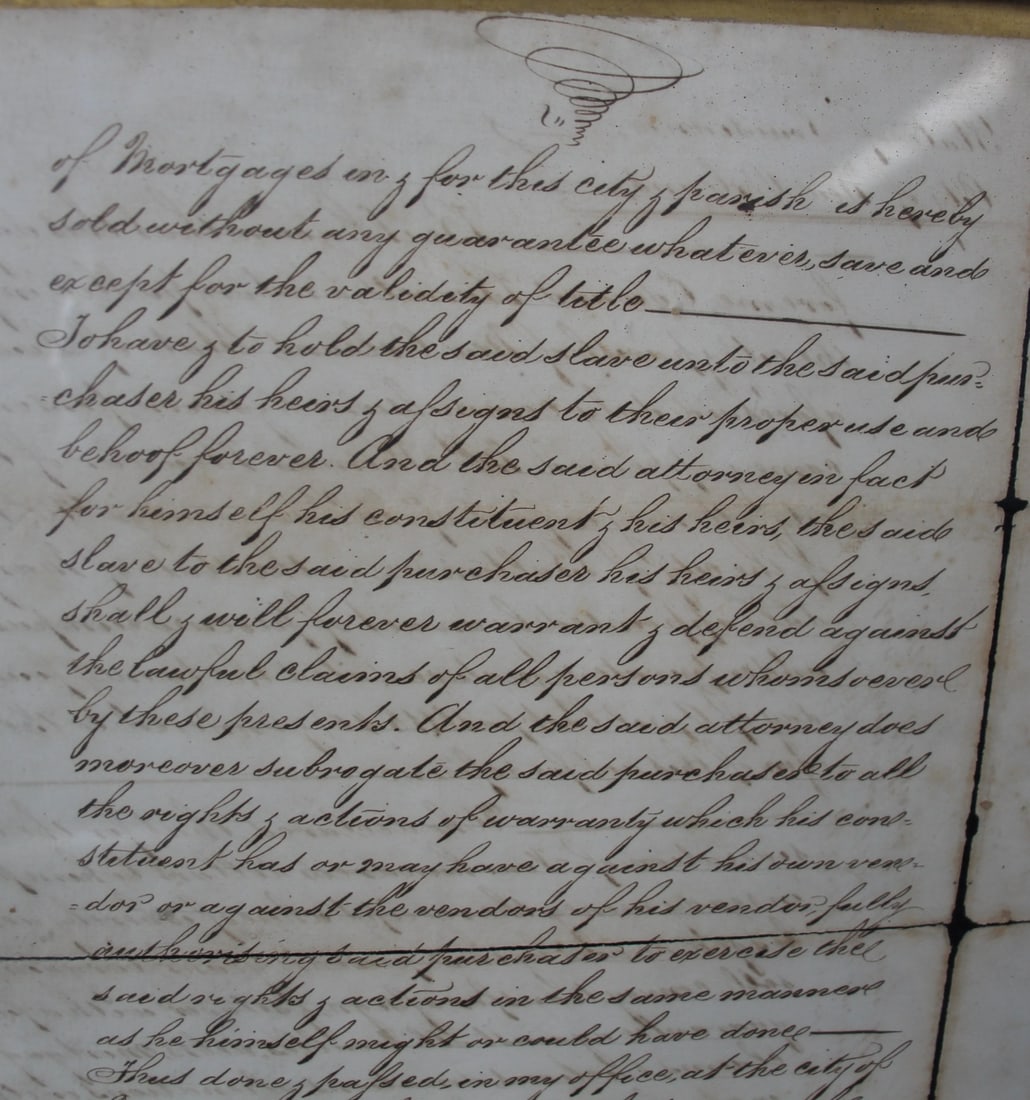 2"
of Mortgages in & for this city & parish is hereby
sold without any guarantee whatever, save and
except for the validity of title
To have & to hold the said slave unto the said pur-
=chaser his heirs & assigns to their proper use and
behoof forever. And the said attorney in fact
for himself his constituent & his heirs, the said
slave to the said purchaser his heirs & assigns,
shall & will forever warrant & defend against
the lawful claims of all persons whomsoever
by these presents. And the said attorney does
moreover subrogate the said purchaser to all
the rights & actions of warranty which his con-
stituent has or may have against his own ven-
=dor or against the vendors of his vendor, fully
authorising said purchaser to exercise the
said rights & actions in the same manner
as he himself might or could have done
Thus done & passed, in my office, at the city of